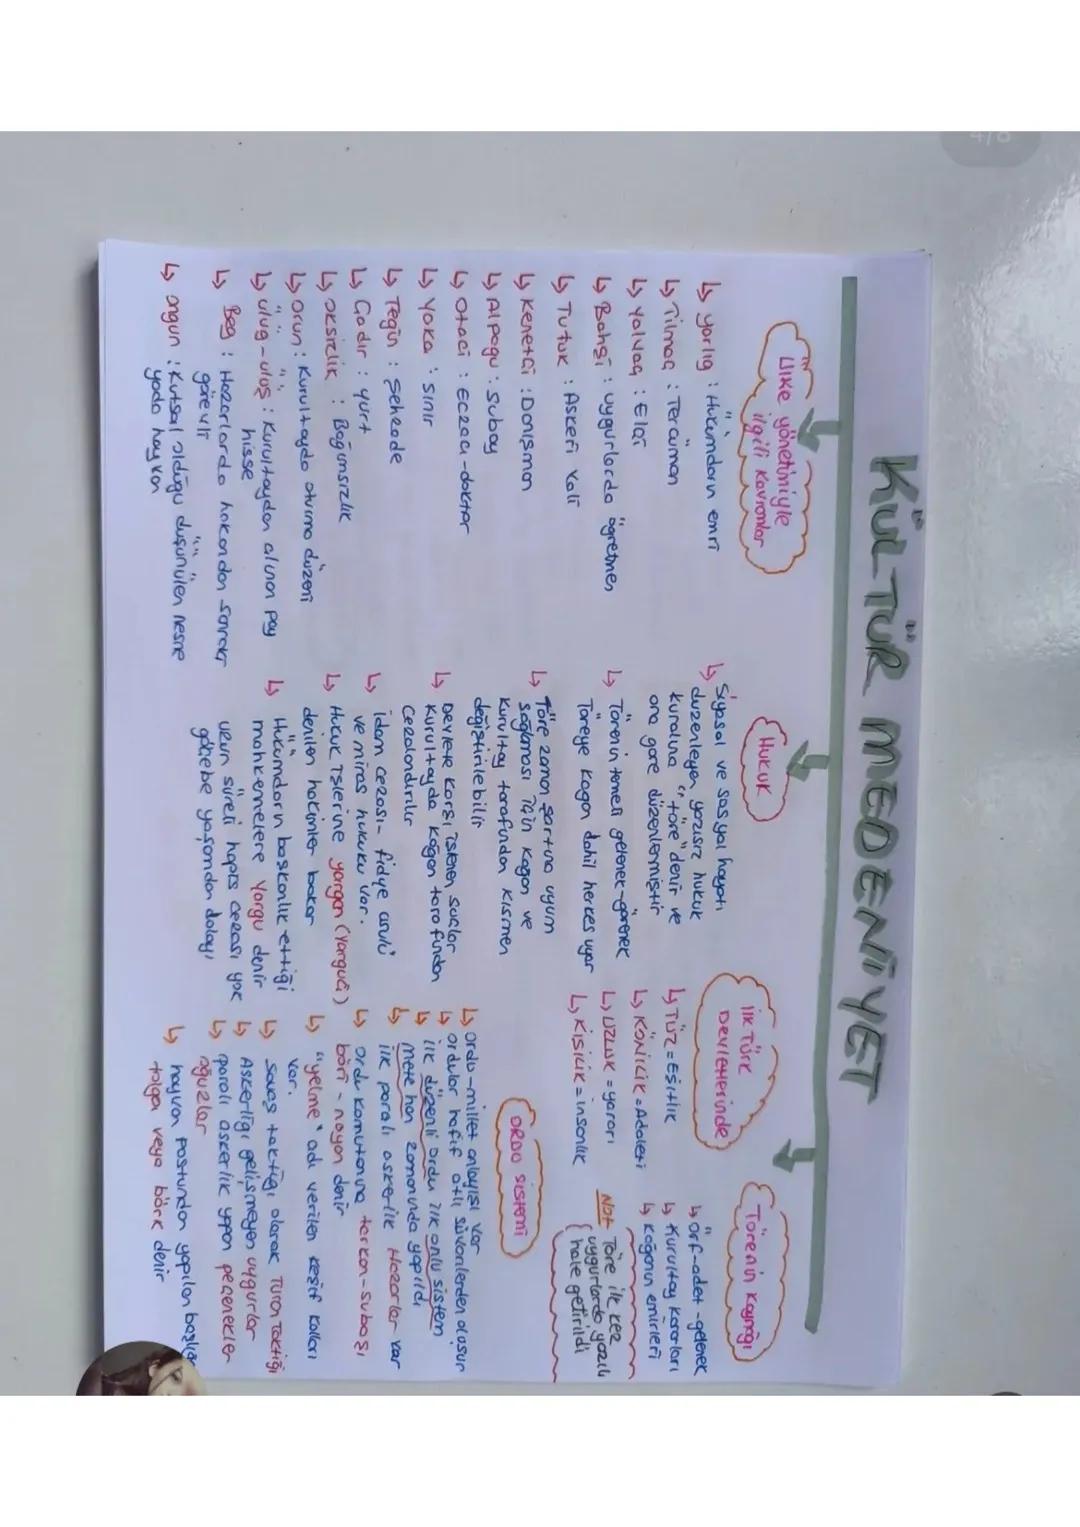 4/8
KÜLTÜR MEDENİYET
Ülke yönetimiyle
ilgili kavramlar
↳ Yarlıg : Hükümdarın emri
↳ Tılmaç : Tercüman
↳ Yalvaç : Elçi
↳ Bahşi : uygurlarda öğretmen
↳ Tutuk : Askeri vali
↳ Kenetçi : Danışman
↳ Alpagu : Subay
↳ Otacı : Eczacı-doktor
↳ Yaka : sınır
↳ Tegin : şehzade
↳ Gadır : yurt
↳ oksızlık : Bağımsızlık
↳ Orun : Kurultayda oturma düzeni
↳ ülüg-ülüş : Kurultaydan alınan pay
hisse
↳ Beg : Hazarlarda hakandan sonraki
görevli
↳ ongun : Kutsal olduğu düşünülen nesne
yada hayvan
HUKUK
↳ Siyasal ve sosyal hayatı
düzenleyen yazısız hukuk
kuralına "töre" denir ve
ona göre düzenlemiştir
↳ Törenin temeli gelenek-görenek
Töreye kagan dahil herkes uyar
↳ Töre zaman şartına uyum
sağlaması için kagan ve
kurultay tarafından kısmen
değiştirilebilir
↳ Devlete karşı işlenen suçlar
kurultayda kağan tarafından
cezalandırılır
↳ idam cezası- fidye usulü
ve miras hukuku var.
↳ Hukuk işlerine yargan (Yarguci)
denilen hakimler bakar
↳ Hükümdarın başkanlık ettiği
mahkemelere Yargu denir
uzun süreli hapis cezası yok
göçebe yaşamdan dolayı
ilk Türk
Devletlerinde
↳ TÜZ = Eşitlik
↳ KÖNİLİK = Adaleti
↳ UZLUK = yararı
↳ KİŞİLİK = insanlık
Törenin Kaynağı
↳ örf-adet-gelenek
↳ Kurultay kararları
↳ Kağanın emirleri
Not Töre ilk kez
uygurlarda yazılı
hale getirildi
ORDU sistemi
↳ ordu-millet anlayışı var
↳ ordular hafif atlı süvarilerden oluşur
↳ ilk düzenli ordu ilk onlu sistem
Mete han zamanında yapıldı
↳ ilk paralı askerlik Hazarlar var
↳ ordu komutanına tarkan-subaşı
böri - noyan denir
↳ "yelme" adı verilen keşif kolları
var.
↳ savaş taktiği olarak Turan Taktiği
↳ Askerliği gelişmeyen uygurlar
↳ paralı askerlik yapan peçenekler
oğuzlar
↳ hayvan postundan yapılan başlık
tolga veya börk denir